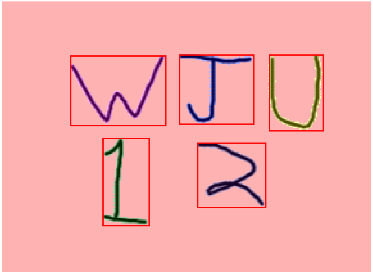 WJU
12